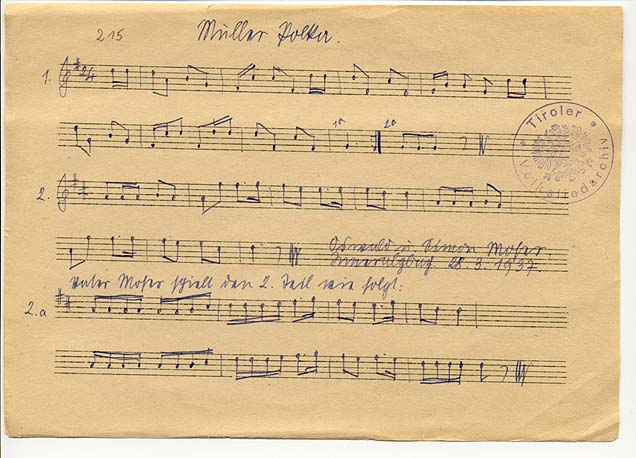 215 Müller Polka.
1. 2/4
1a 2a
* Tiroler * Volksliedarchiv
2.
Oswald u. Simon Moser
Inneralpbach 28.3.1937.
Vater Moser spielt den 2. Teil wie folgt:
2.a